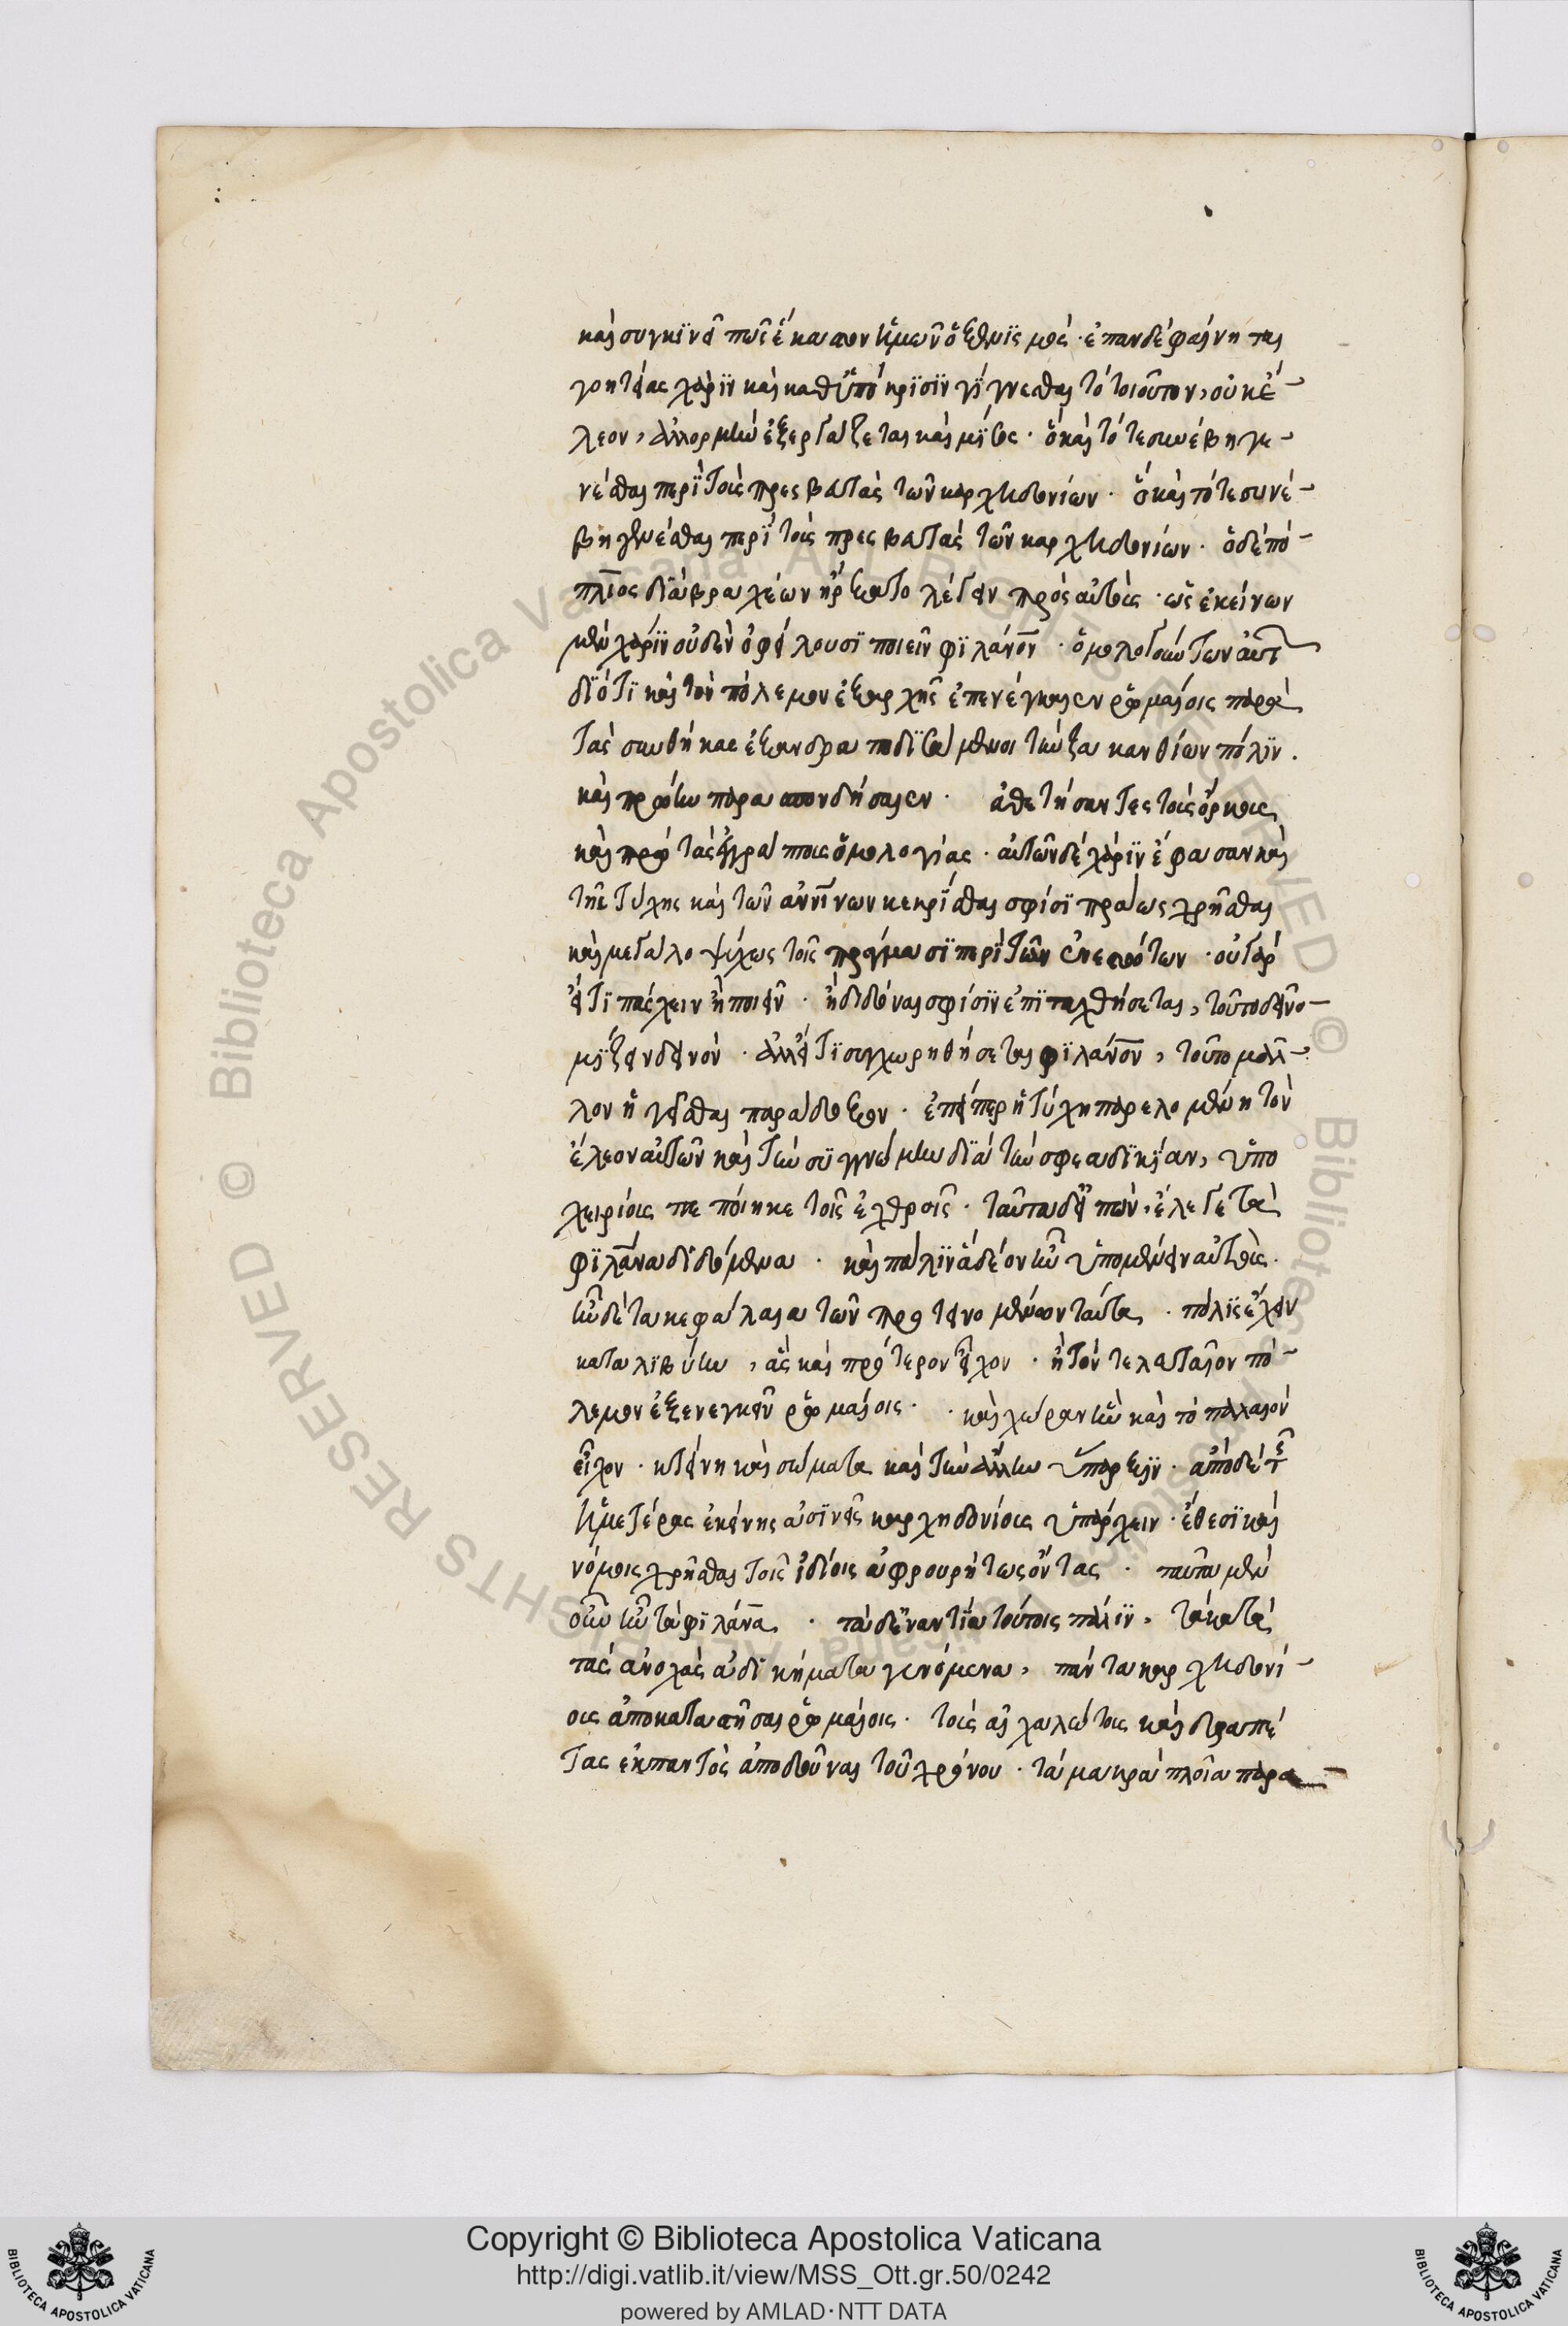 καὶ συγκινεῖ πως ἕκαστον ἡμῶν ὁ ξενισμός· ἐπὰν δὲ φαίνηται
γοητείας χάριν καὶ καθ᾽ ὑπόκρισιν γίγνεσθαι τὸ τοιοῦτον, οὐκ ἔ-
λεον, ἀλλ᾽ ὀργὴν ἐξεργάζεται καὶ μῖσος. ὃ καὶ τότε συνέβη γε-
νέσθαι περὶ τοὺς πρεσβευτὰς τῶν καρχηδονίων. ὃ καὶ τότε συνέ-
βη γενέσθαι περὶ τοὺς πρεσβευτὰς τῶν καρχηδονίων. ὁ δὲ πό-
πλιος διὰ βραχέων ἤρξατο λέγειν πρὸς αὐτοὺς· ὡς ἐκείνων
μὲν χάριν οὐδὲν ὀφείλουσι ποιεῖν φιλάνον· ὁμολογούντων αὐτ
διότι καὶ τὸν πόλεμον ἐξ ἀρχῆς ἐπενέγκαιεν ῥωμαίοις παρὰ
τὰς συνθήκας ἐξανδραποδισάμενοι τὴν ζακανθίων πόλιν.
καὶ πρώην παρασπονδήσαιεν· ἀθετήσαντες τοὺς ὅρκους
καὶ τὰς ἐγγράπτους ὁμολογίας· αὐτῶν δὲ χάριν ἔφασαν καὶ
τῆς τύχης καὶ τῶν ἀννίνων κεκρίσθαι σφίσι πράως χρῆσθαι
καὶ μεγαλοψύχως τοῖς πράγμασι περὶ τῶν ἐνεστότων· οὐ γὰρ
εἴ τι πάσχειν ἢ ποιεῖν· ἢ διδόναι σφίσιν ἐπιταχθήσεται, τοῦτο δεῖ νο-
μίζειν δεινὸν· ἀλλ᾽ εἴ τι συγχωρηθήσεται φιλάνον, τοῦτο μᾶλ-
λον ἡγεῖσθαι παράδοξον· ἐπείπερ ἡ τύχη παρελομένη τὸν
ἔλεον αὐτῶν καὶ τὴν συγγνώμην διὰ τὴν σφε ἀδικίαν, ὑπο
χειρίους πεποίηκε τοῖς ἐχθροῖς· ταῦτα δ᾽ εἰπὼν, ἔλεγε τὰ
φιλάνα διδόμενα· καὶ πάλιν ἃ δέον ἦν ὑπομένειν αὐτοὺς.
ἦν δὲ τὰ κεφάλαια τῶν προτεινομένων ταῦτα· πόλις ἔχειν
κατὰ λιβύην, ἃς καὶ πρότερον εἶχον· ἢ τὸν τελευταῖον πό-
λεμον ἐξενεγκεῖν ῥωμαίοις· καὶ χώραν ἣν καὶ τὸ παλαιὸν
εἶχον· κτείνη καὶ σώματα καὶ τὴν ἄλλην ὕπαρξιν· ἀπὸ δὲ τῆς
ἡμετέρας ἐκείνης ἀσινεῖς καρχηδονίους ὑπάρχειν· ἔθεσι καὶ
νόμοις χρῆσθαι τοῖς ἰδίοις ἀφρουρήτως ὄντας· ταῦτα μὲν
οὖν ἦν τὰ φιλάνα· τὰ δ᾽ ἐναντία τούτοις πάλιν, τὰ κατὰ
τὰς ἀνοχὰς ἀδικήματα γενόμενα, πάντα καρχηδονί-
ους ἀποκαταστῆσαι ῥωμαίοις· τοὺς αἰχμαλώτους καὶ δραπέ
τας ἐκ παντὸς ἀποδοῦναι τοῦ χρόνου· τὰ μακρὰ πλοῖα παρα-
Copyright © Biblioteca Apostolica Vaticana
http://digi.vatlib.it/view/MSS_Ott.gr.50/0242
powered by AMLAD·NTT DATA